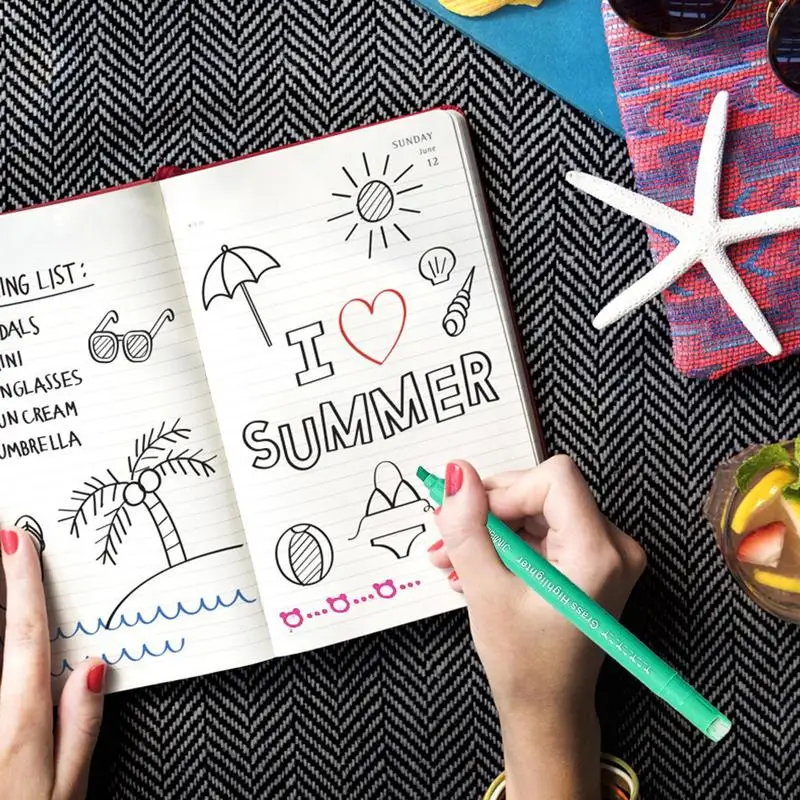 ING LIST:
DALS
INI
NGLASSES
UN CREAM
UMBRELLA
SUNDAY
June
12
I
SUMMER
Grass Highlighter